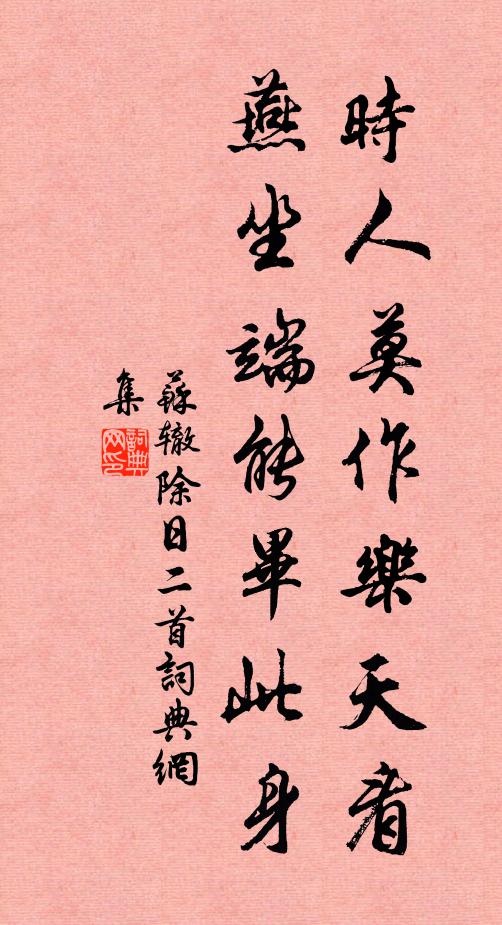 時人莫作樂天看
燕坐端能畢此身
蘇辙除日二首詞典網
集
詞典
网印